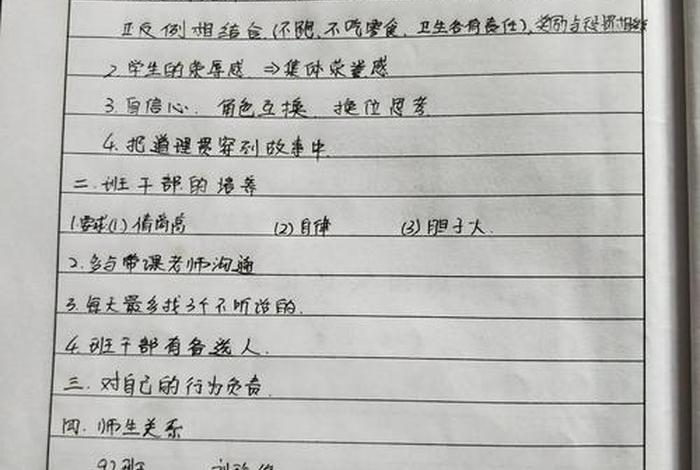 正反例相结合.(不跑、不吃零食、卫生各有责任),奖励与
2.学生的荣辱感 ⇒集体荣誉感
3.自信心. 角色互换. 换位思考
4.把道理贯穿到故事中.
二.班干部的培养
1.要求(1)情商高 (2)自律 (3)胆子大.
2.多与带课老师沟通
3.每天最多找3个不听话的.
4.班干部有备选人.
三.对自己的行为负责.
四.师生关系